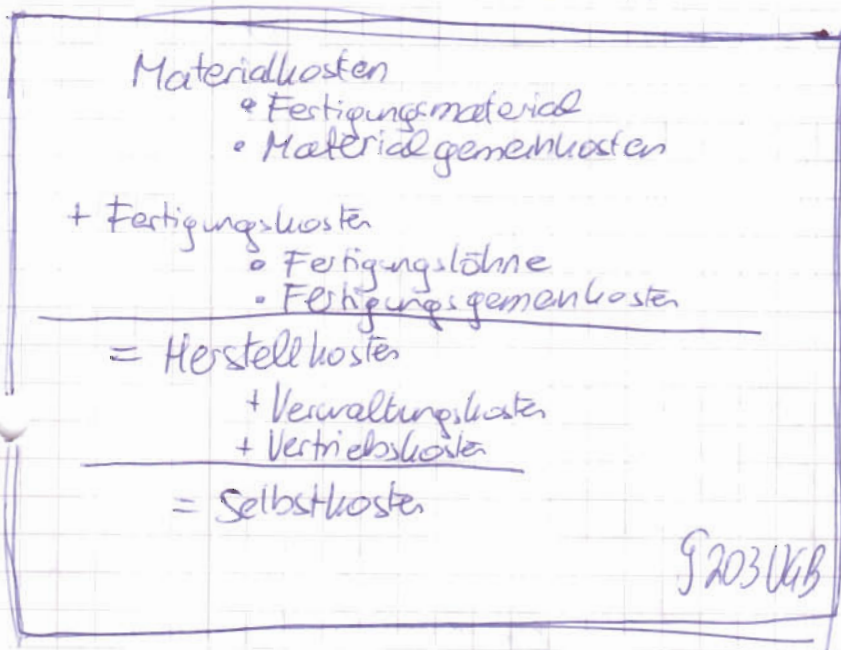 Materialkosten
• Fertigungsmaterial
• Materialgemeinkosten
+ Fertigungskosten
• Fertigungslöhne
• Fertigungsgemeinkosten
= Herstellkosten
+ Verwaltungskosten
+ Vertriebskosten
= Selbstkosten
§ 203 UGB